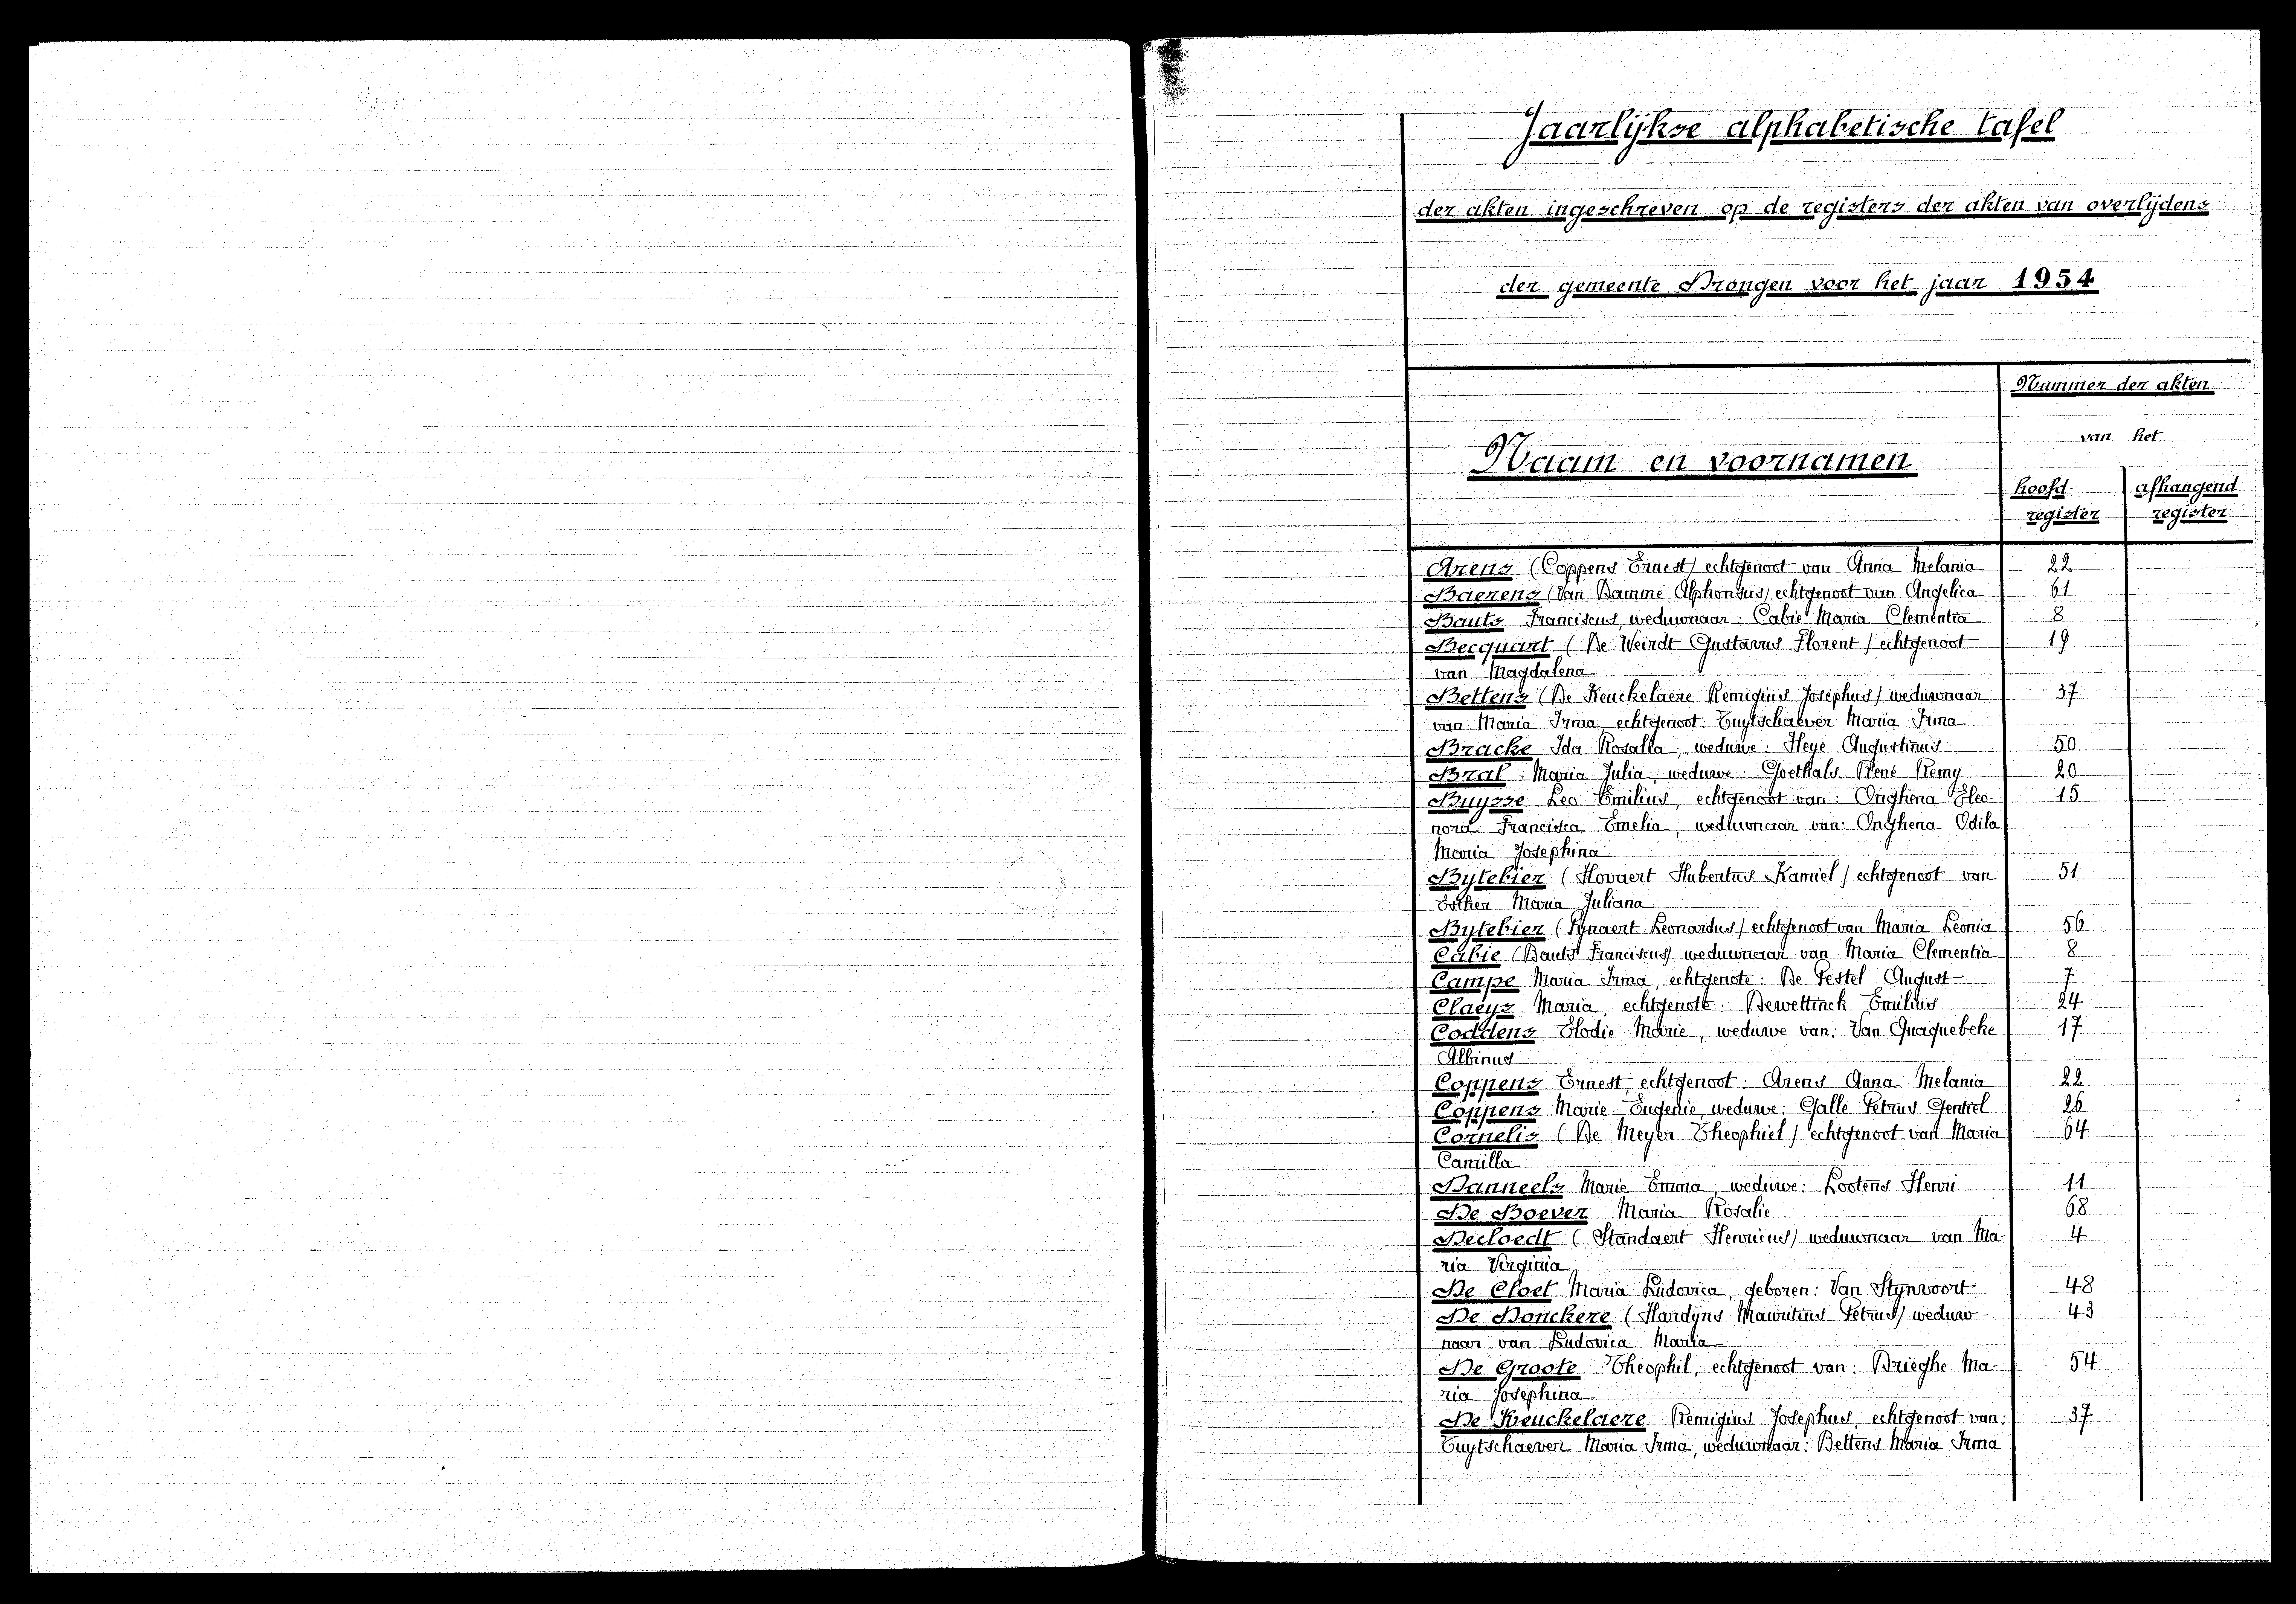 Jaarlijkse alphabetische tafel
der akten ingeschreven op de registers der akten van overlijdens
der gemeente Drongen voor het jaar 1954
Nummer der akten
van het
Naam en voornamen
hoofd- afhangend
register register
Arens (Coppens Ernest) echtgenoot van Anna Melania 22
Baerens (Van Damme Alphonsus) echtgenoot van Angelica 61
Bauts Franciscus, weduwnaar: Cabie Maria Clementia 8
Becquart (De Weirdt Gustavus Florent) echtgenoot 19
van Magdalena
Bettens (De Keuckelaere Remigius Josephus) weduwnaar 37
van Maria Irma, echtgenoot: Tuytschaever Maria Irma
Bracke Ida Rosalia, weduwe: Heye Augustinus 50
Bral Maria Julia, weduwe: Goethals René Remy 20
Buysse Leo Emilius, echtgenoot van: Onghena Eleo- 15
nora Francisca Emelia, weduwnaar van: Onghena Odila
Maria Josephina
Bytebier (Hovaert Hubertus Kamiel) echtgenoot van 51
Esther Maria Juliana
Bytebier (Pynaert Leonardus) echtgenoot van Maria Leonia 56
Cabie (Bauts Franciscus) weduwnaar van Maria Clementia 8
Campe Maria Irma, echtgenote: De Pestel August 7
Claeys Maria, echtgenote: Dewettinck Emilius 24
Coddens Elodie Marie, weduwe van: Van Quaquebeke 17
Albinus
Coppens Ernest, echtgenoot: Arens Anna Melania 22
Coppens Marie Eugenie, weduwe: Galle Petrus Gentiel 26
Cornelis (De Meyer Theophiel) echtgenoot van Maria 64
Camilla
Danneels Marie Emma, weduwe: Lootens Henri 11
De Boever Maria Rosalie 68
Decloedt (Standaert Henricus) weduwnaar van Ma- 4
ria Virginia
De Cloet Maria Ludovica, geboren: Van Stynvoort 48
De Donckere (Hardyns Mauritius Petrus) weduw- 43
naar van Ludovica Maria
De Groote Theophil, echtgenoot van: Brieghe Ma- 54
ria Josephina
De Keuckelaere Remigius Josephus, echtgenoot van: 37
Tuytschaever Maria Irma, weduwnaar: Bettens Maria Irma